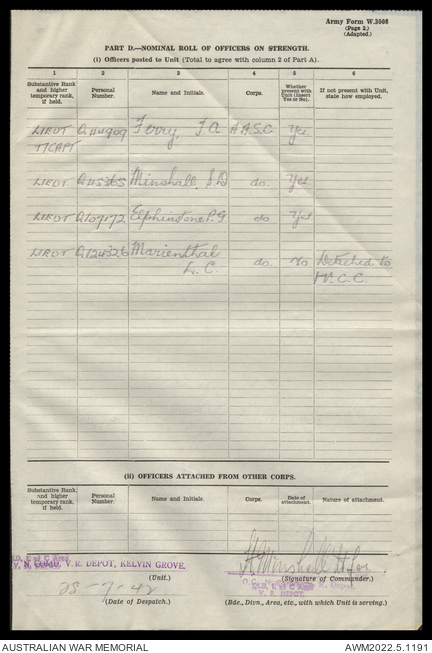 Army Form W.3008
(Page 2.)
(Adapted.)
PART D.—NOMINAL ROLL OF OFFICERS ON STRENGTH.
(i) Officers posted to Unit (Total to agree with column 2 of Part A).
1 2 3 4 5 6
Substantive Rank and higher temporary rank, if held. Personal Number. Name and Initials. Corps. Whether present with Unit (Insert Yes or No). If not present with Unit, state how employed.
LIEUT Q.114909 Terry, J.A A.A.S.C. Yes
T/CAPT
LIEUT Q.115365 Minshall, S.D do. Yes
LIEUT Q.107172 Elphinstone P.G do Yes
LIEUT Q.124326 Marienthal do. No Detached to
L. C. C. C.
(ii) OFFICERS ATTACHED FROM OTHER CORPS.
Substantive Rank, and higher temporary rank, if held. Personal Number. Name and Initials. Corps. Date of attachment. Nature of attachment.
COMD, V.R. DEPOT, KELVIN GROVE.
Minshall
(Unit.)
(Signature of Commander.)
V. R. DEPOT.
28-7-42
(Date of Despatch.)
(Bde., Divn., Area, etc., with which Unit is serving.)
AUSTRALIAN WAR MEMORIAL
AWM2022.5.1191